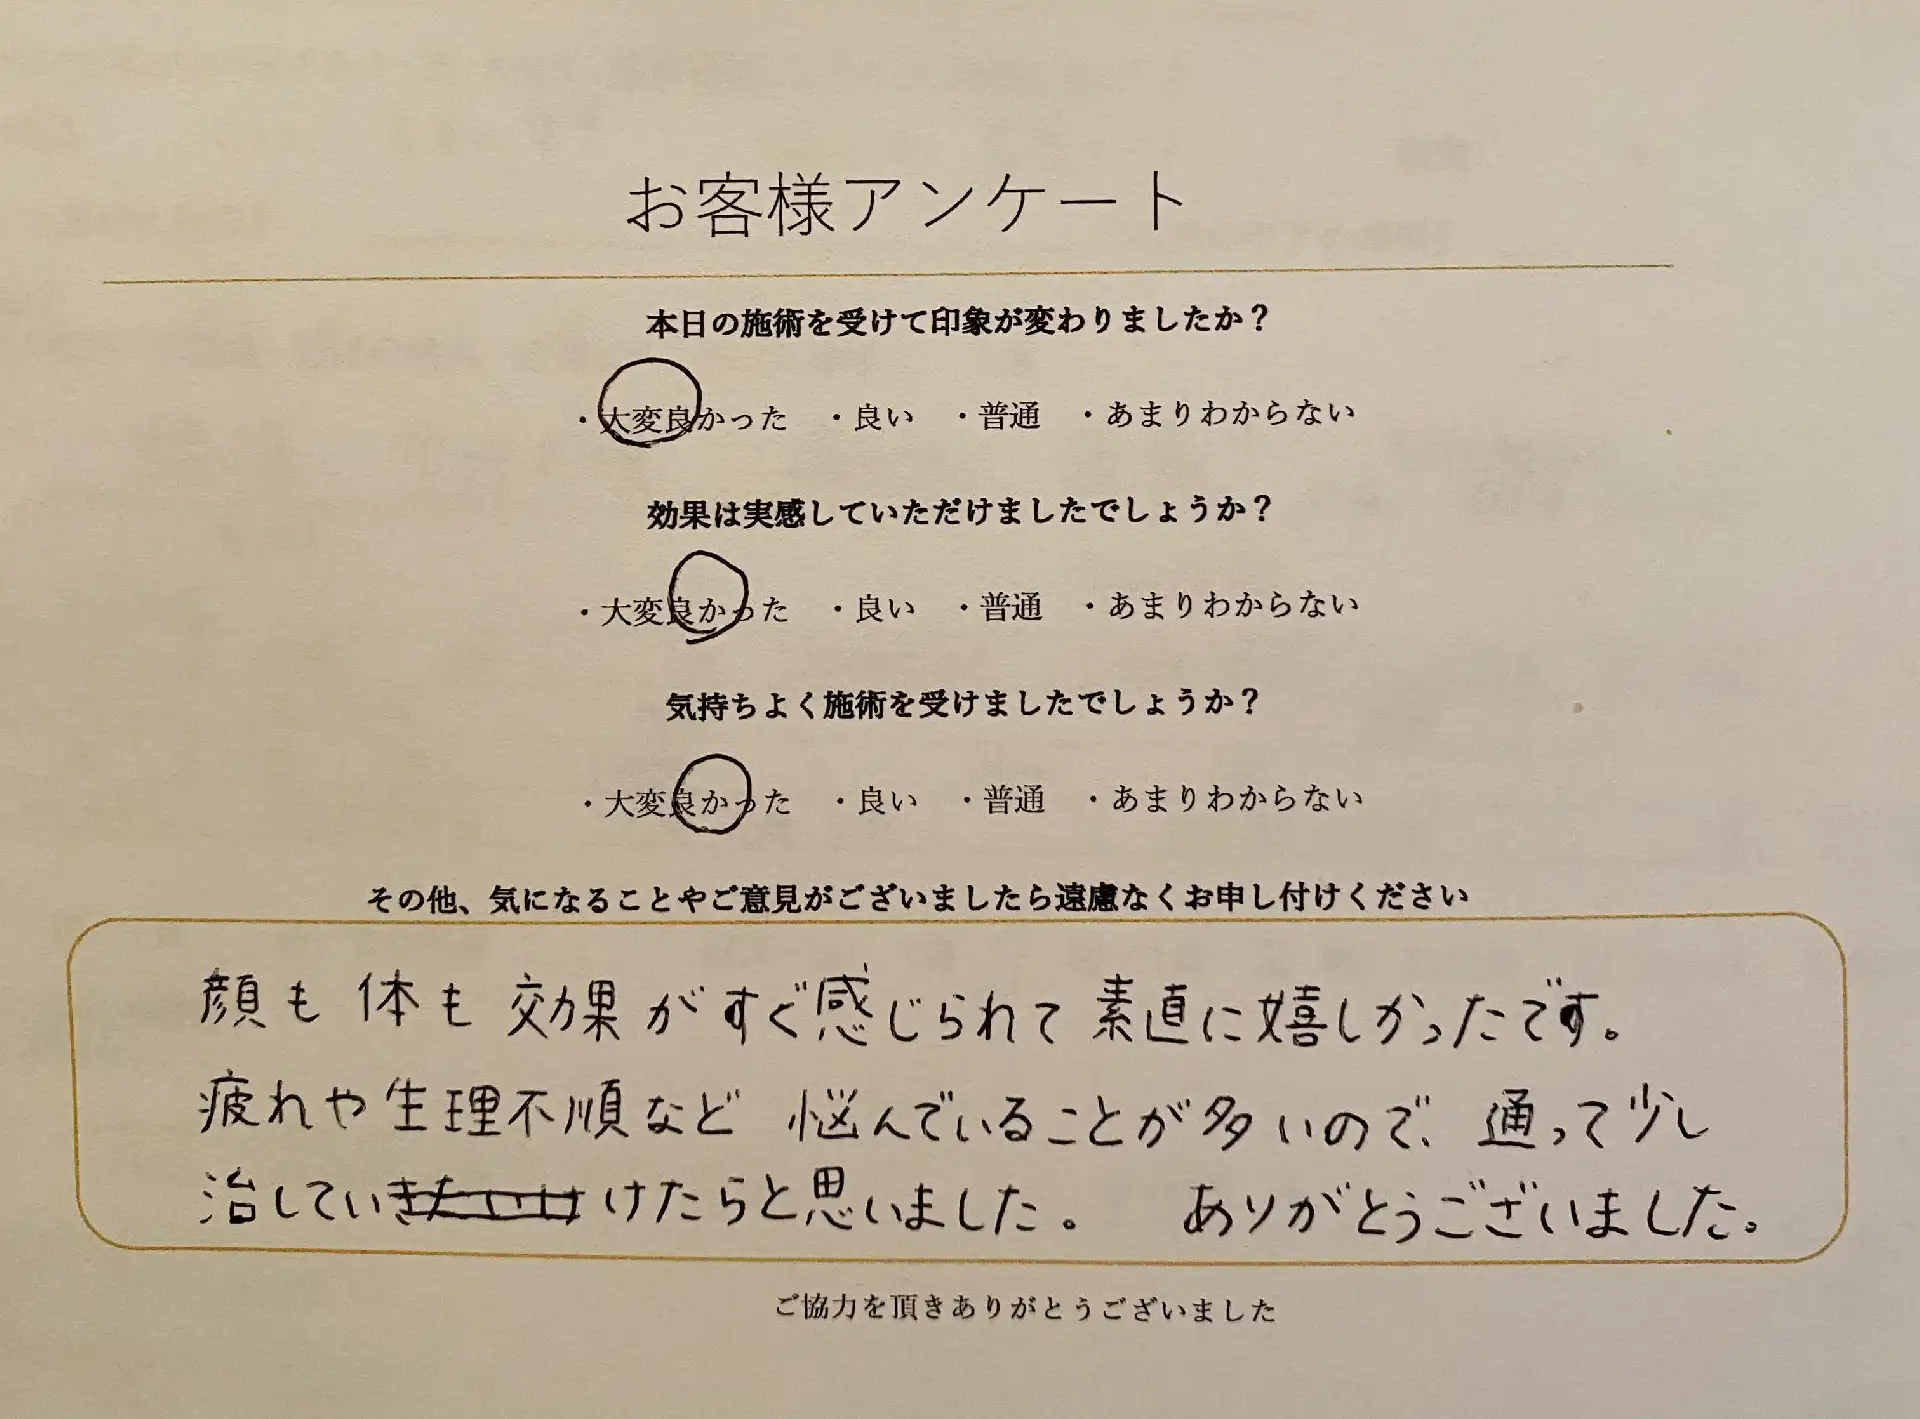 お客様アンケート
本日の施術を受けて印象が変わりましたか？
・大変良かった ・良い ・普通 ・あまりわからない
効果は実感していただけましたでしょうか？
・大変良かった ・良い ・普通 ・あまりわからない
気持ちよく施術を受けましたでしょうか？
・大変良かった ・良い ・普通 ・あまりわからない
その他、気になることやご意見がございましたら遠慮なくお申し付けください
顔も 体も 効果がすぐ感じられて 素直に嬉しかったです。
疲れや生理不順など 悩んでいることが多いので、通って少し
治していけたらと思いました。 ありがとうございました。
ご協力を頂きありがとうございました